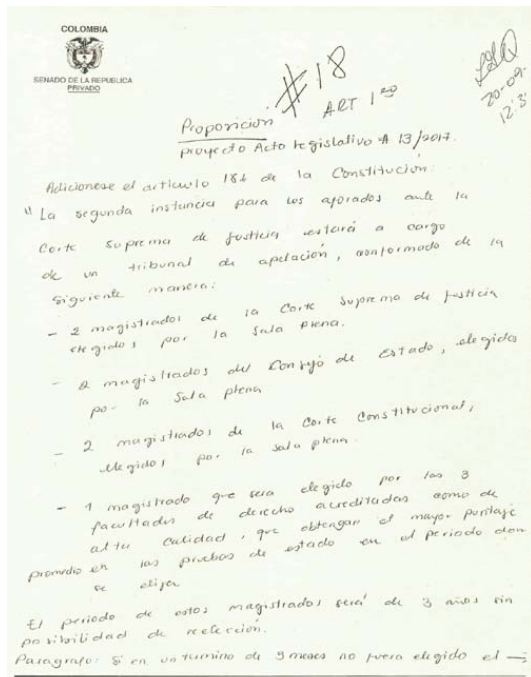 COLOMBIA
SENADO DE LA REPUBLICA
PRIVADO
#18
ART 1ro
20-09-
12:3
Proposición
proyecto Acto legislativo # 13/2017.
Adicionese el articulo 186 de la Constitución:
"La segunda instancia para los aforados ante la
Corte Suprema de Justicia estará a cargo
de un tribunal de apelación, conformado de la
siguiente manera:
- 2 magistrados de la Corte Suprema de Justicia
elegidos por la Sala plena.
- 2 magistrados del Consejo de Estado, elegidos
por la Sala plena
- 2 magistrados de la Corte Constitucional,
elegidos por la sala plena.
- 1 magistrado que sera elegido por las 3
facultades de derecho acreditadas como de
alta calidad, que obtengan el mayor puntaje
promedio en las pruebas de estado en el periodo
se elijen
El periodo de estos magistrados será de 3 años sin
posibilidad de reelección.
Paragrafo: Si en un termino de 3 meses no fuera elegido el